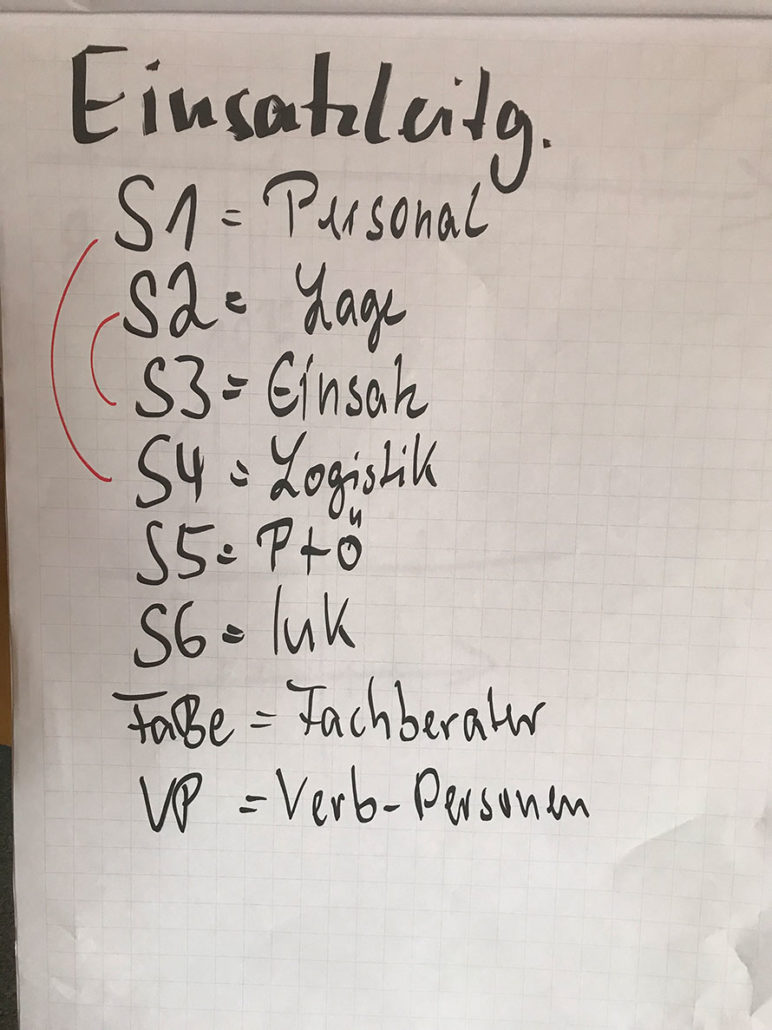 Einsatzleitg.
S1 = Personal
S2 = Lage
S3 = Einsatz
S4 = Logistik
S5 = P+Ö
S6 = IuK
FaBe = Fachberater
VP = Verb-Personen